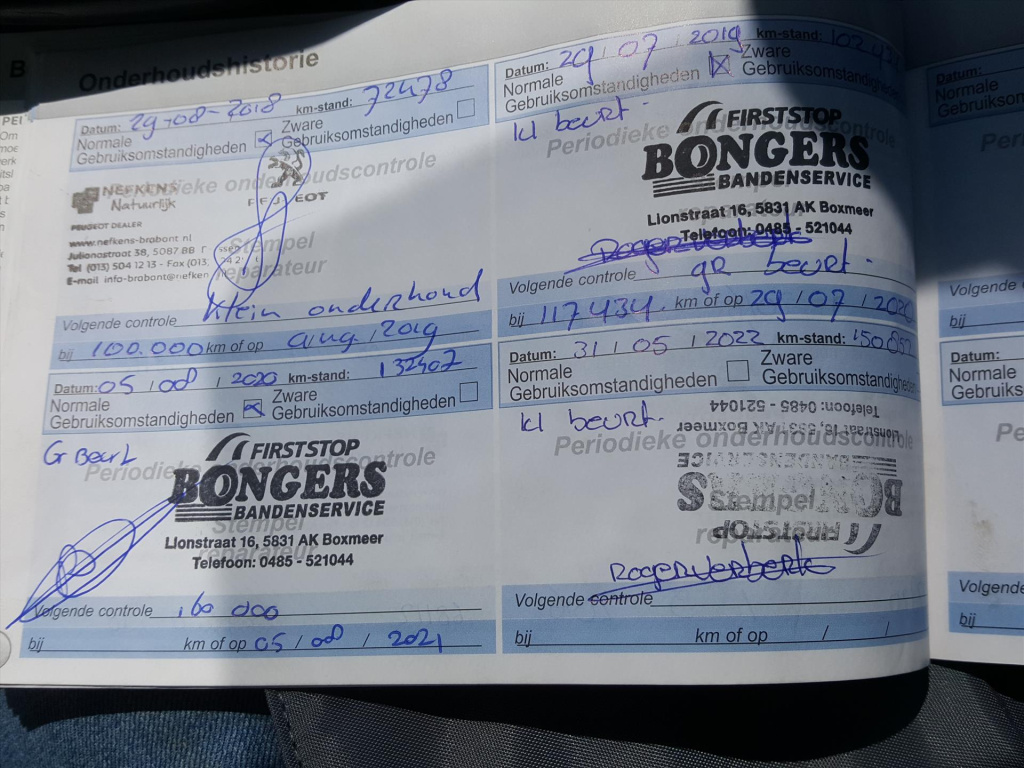 Onderhoudshistorie
Datum: 29-08-2018 km-stand: 72478
Normale Gebruiksomstandigheden Zware Gebruiksomstandigheden
Periodieke onderhoudscontrole
NEFKENS
Natuurlijk
PEUGEOT
PEUGEOT DEALER
www.nefkens-brabant.nl
Julianastraat 38, 5087 BB
Tel (013) 504 12 13 - Fax (013)
E-mail info-brabant@nefken
Stempel
reparateur
Volgende controle Klein onderhoud
bij 100.000 km of op aug / 2019
Datum: 05 / 08 / 2020 km-stand: 132407
Normale Gebruiksomstandigheden Zware Gebruiksomstandigheden
G Beurt
Periodieke onderhoudscontrole
FIRSTSTOP
BONGERS
BANDENSERVICE
Stempel
reparateur
Lionstraat 16, 5831 AK Boxmeer
Telefoon: 0485 - 521044
Volgende controle 160 000
bij km of op 05 / 08 / 2021
Datum: 29 / 07 / 2019 km-stand:
Normale Gebruiksomstandigheden Zware Gebruiksomstandigheden
kl beurt.
Periodieke onderhoudscontrole
FIRSTSTOP
BONGERS
BANDENSERVICE
Stempel
reparateur
Lionstraat 16, 5831 AK Boxmeer
Telefoon: 0485 - 521044
Rogerverberk
Volgende controle gr beurt.
bij 117434. km of op 29 / 07 / 2020
Datum: 31 / 05 / 2022 km-stand:
Normale Gebruiksomstandigheden Zware Gebruiksomstandigheden
kl beurt.
Periodieke onderhoudscontrole
Telefoon: 0485 - 521044
Lionstraat 16, 5831 AK Boxmeer
BANDENSERVICE
BONGERS
FIRSTSTOP
Stempel
reparateur
Rogerverberk
Volgende controle
bij km of op / /
Datum:
Normale
Volgende
bij